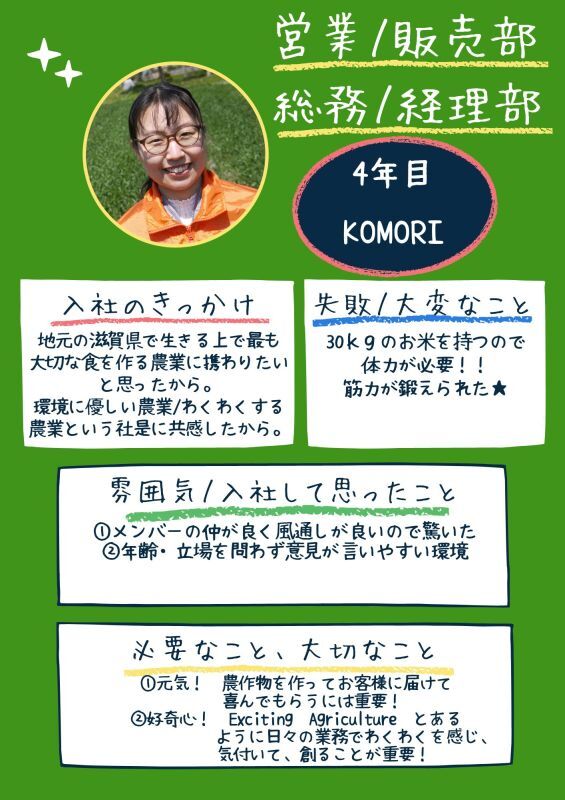 営業/販売部
総務/経理部
4年目
KOMORI
入社のきっかけ
地元の滋賀県で生きる上で最も
大切な食を作る農業に携わりたい
と思ったから。
環境に優しい農業/わくわくする
農業という社是に共感したから。
失敗/大変なこと
30kgのお米を持つので
体力が必要!!
筋力が鍛えられた★
雰囲気/入社して思ったこと
①メンバーの仲が良く風通しが良いので驚いた
②年齢・立場を問わず意見が言いやすい環境
必要なこと、大切なこと
①元気! 農作物を作ってお客様に届けて
喜んでもらうには重要!
②好奇心! Exciting Agriculture とある
ように日々の業務でわくわくを感じ、
気付いて、創ることが重要!